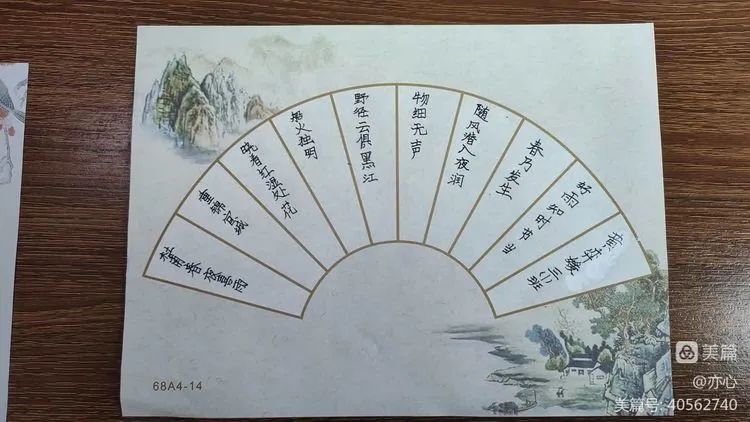 班
好雨知时节当
春乃发生
随风潜入夜润
物细无声
野径云俱黑江
船火独明
晓看红湿处花
重锦官城
杜甫春夜喜雨
68A4-14
美篇
@亦心
美篇号:40562740